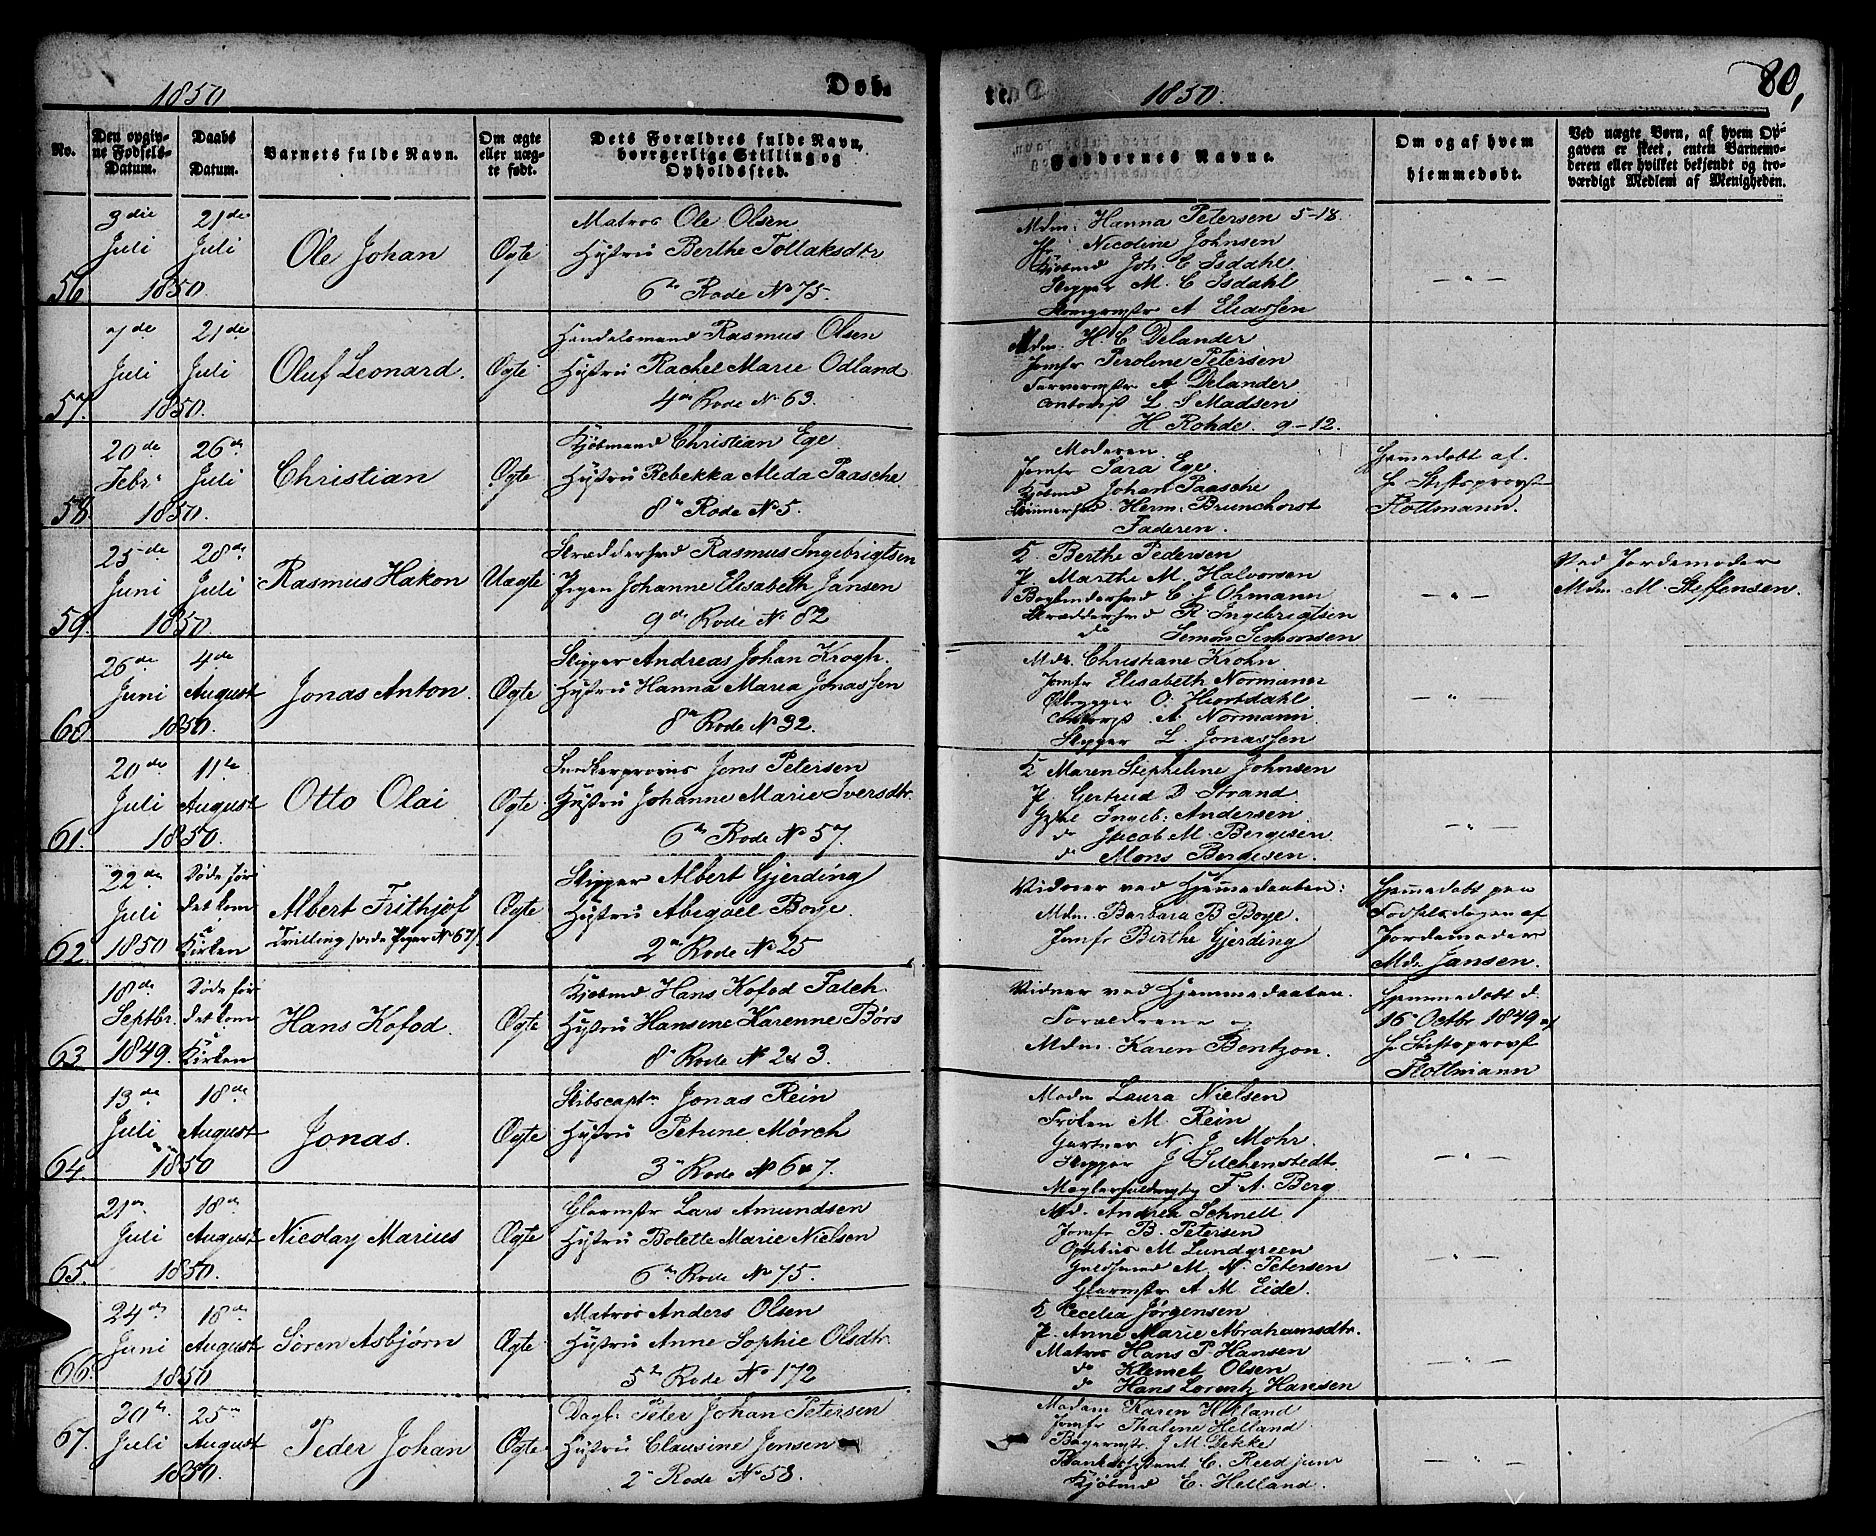 1850
Døb-
te.
1850.
80,
No.
Den opgiv-
ne Fødsels-
Datum.
Daabs
Datum.
Barnets fulde Navn.
Om ægte
eller uæg-
te født.
Dets Forældres fulde Navn,
borrgerlige Stilling og
Opholdssted.
Faddernes Navne.
Om og af hvem
hjemmedøbt.
Ved uægte Børn, af hvem Op-
gaven er skeet, enten Barnemo-
deren eller hvilket bekjendt og tro-
værdigt Medlem af Menigheden.
56.
3die Juli 1850.
21de Juli
Ole Johan
Ægte
Matros Ole Olsen
Hustru Berthe Tollaksdtr
6te Rode No 75.
Mdm: Hanna Petersen 5-18.
Nicoline Johnsen
Kjøbmd Joh. C Isdahl
Skipper M. C Isdahl
A Eliassen
— " —
57.
7de Juli 1850.
21de Juli
Oluf Leonard.
Ægte
Handelsmand Rasmus Olsen
Hustru Rachel Marie Odland
4de Rode No 63.
Mdm. H. C Delander
Jomfr Peroline Petersen
Farvermstr A Delander
Contorist L. S Madsen
H Rohde 9-12.
58.
20de Febr. 1850.
26de Juli
Christian
Ægte
Kjøbmand Christian Ege
Hustru Rebekka Alida Paasche
8de Rode No 5.
Moderen
Jomfr Sara Ege.
Kjøbmd Johan Paasche
Herm: Brunchorst
Faderen.
Hjemmedøbt af.
Hr Stiftsprovst
Flottmann.
59.
25de Juni 1850.
28de Juli
Rasmus Hakon
Uægte
Skræddersvd Rasmus Ingebrigtsen
Pigen Johanne Elisabeth Jansen
9de Rode No 82
K. Berthe Pedersen
P. Marthe M. Halvorsen
Bogbindersvd C J Ohmann
Skræddersvd R. Ingebrigtsen
do Semon Simonsen
— " —
Ved Jordemoder
Mdm. M. Steffensen.
60
26de Juni 1850.
4de August
Jonas Anton
Ægte
Skipper Andreas Johan Krogh.
Hustru Hanna Maria Jonassen
8de Rode No 32.
Md. Christiane Krohn
Jomfr Elisabeth Normann
Ølbrygger O. Hiortdahl
Contorist A. Normann.
Skipper L. Jonassen
— " —
61.
20de Juli 1850.
11te August
Otto Olai
Ægte
Jens Petersen
Hustru Johanne Marie Iversdtr.
6te Rode No 57.
K Maren Stepheline Johnsen
P. Gertrud D Strand
Ingeb: Andersen
do Jacob M. Bergesen
do Mons Bergesen.
— " —
62.
22de Juli 1850
Døde før
det kom
i Kirken
Albert Frithjof
Tvilling se Piger No 67.
Ægte
Skipper Albert Gjerding
Hustru Abigael Boye.
2de Rode No 25
Vidner ved Hjemmedaaben:
Mdm. Barbara B Boye.
Jomfr Berthe Gjerding
Hjemmedøbt paa
Fødselsdagen af
Jordemoder
Md. Jansen.
63.
18de Septbr. 1849.
Døde før
det kom
i Kirken
Hans Kofod.
Ægte
Kjøbmd Hans Kofod Falch.
Hustru Hansine Karenne Børs
8de Rode No 2 & 3.
Vidner ved Hjemmedaaben.
Forældrene og
Mdm. Karen Bentzon.
Hjemmedøbt d.
16 Octbr 1849 af
Hr Stiftsprovst
Flottmann
64.
13de Juli 1850
18de August
Jonas.
Ægte
Skibscaptn Jonas Rein
Hustru Petrine Mørch
3de Rode No 6 & 7.
Madm Laura Nielsen
Frøken M. Rein
Gartner N. J Mohr.
Skipper J Silchenstedt.
F. A. Berg
— " —
65.
21de Juli 1850.
18de August
Nicolay Marius
Ægte
Glarmstr Lars Amundsen
Hustru Bolette Marie Nielsen
6te Rode No 75.
Md. Andrea Schnell
Jomfr B. Petersen
M Lundgreen
Guldsmed M. N. Petersen
Glarmstr A M Eide.
— " —
66.
24de Juni 1850
18de August
Søren Asbjørn
Ægte
Matros Anders Olsen
Hustru Anne Sophie Olsdtr.
5te Rode No 172
K Cecelia Jørgensen
P. Anne Marie Abrahamsdtr.
Matros Hans P. Hansen
do Klemet Olsen
do Hans Lorentz Hansen
— " —
67.
20de Juli 1850.
25de August
Peder Johan
Ægte
Dagl: Peter Johan Petersen
Hustru Clausine Jensen
2de Rode No 58.
Madam Karen Helland
Jomfr Thaline Helland
Bagermstr J M Dekke
C. Reed jun
Kjøbmd E. Helland.
— " —